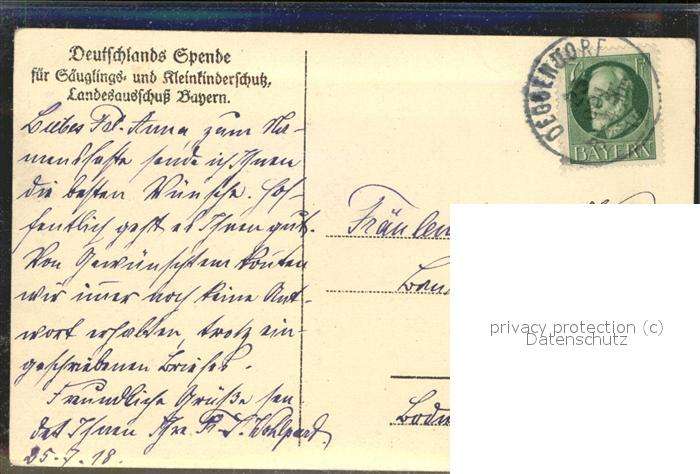 Deutschlands Spende
für Säuglings- und Kleinkinderschutz,
Landesausschuß Bayern.
Liebes Frl. Anna, zum Na-
mensfeste sende ich Ihnen
die besten Wünsche. Hof-
fentlich geht es Ihnen gut.
Von Gewünschtem konten
wir imer noch keine Ant-
wort erhalten, trotz ein-
geschriebenen Briefes.
Freundliche Grüße sen-
det Ihnen Ihre
25.7.18.
DEGGENDORF
BAYERN
Fräulein
privacy protection (c)
Datenschutz